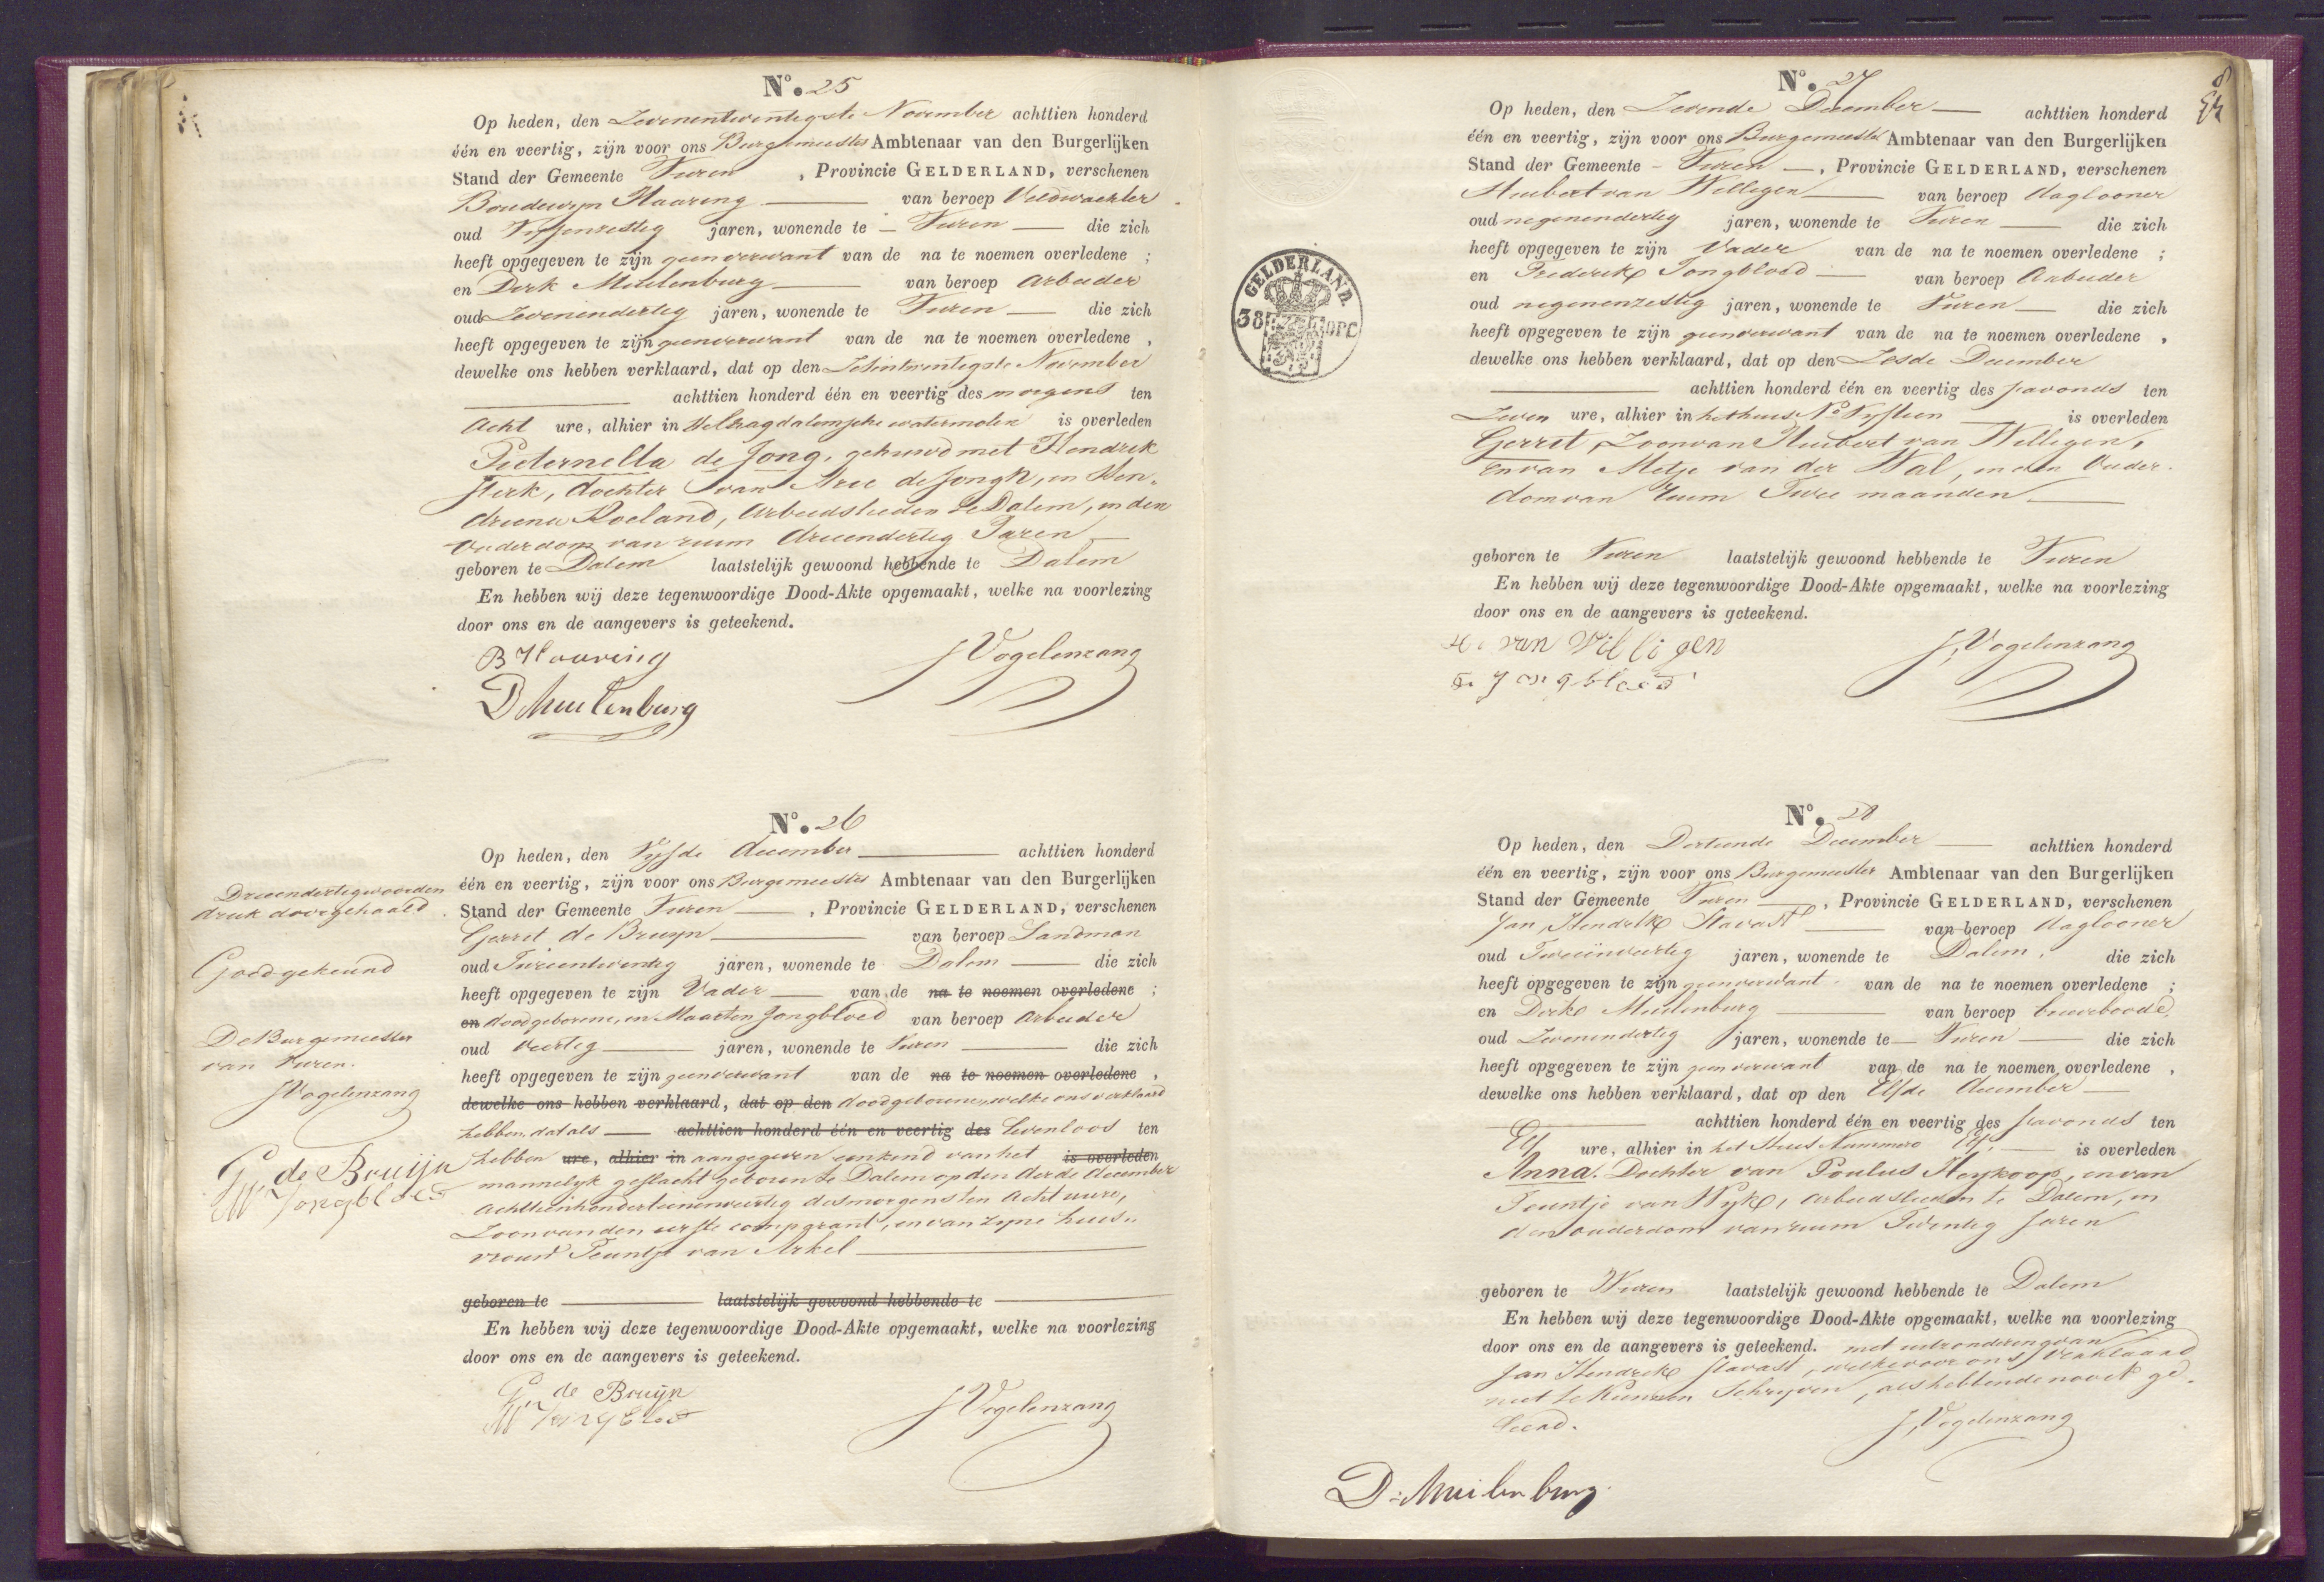 N°. 25
Op heden, den Zevenentwintigste November achttien honderd
één en veertig, zijn voor ons Burgemeester Ambtenaar van den Burgerlijken
Stand der Gemeente Vuren , Provincie GELDERLAND, verschenen
Boudewyn Haaring van beroep Veldwachter
oud Vyfenzestig jaren, wonende te Vuren die zich
heeft opgegeven te zijn geenverwant van de na te noemen overledene ;
en Derk Meulenburg van beroep Arbeider
oud Zevenendertig jaren, wonende te Vuren die zich
heeft opgegeven te zijn geenverwant van de na te noemen overledene ,
dewelke ons hebben verklaard, dat op den Zesentwintigste November
achttien honderd één en veertig des morgens ten
Acht ure, alhier in Helkagdalemsche watermolen is overleden
Pieternella de Jong, gehuwd met Hendrik
Sterk, dochter van Arie de Jongh, en Hen„
driena Roeland, Arbeidslieden te Dalem, in den
Ouderdom van ruim drieendertig Jaren
geboren te Dalem laatstelijk gewoond hebbende te Dalem
En hebben wij deze tegenwoordige Dood-Akte opgemaakt, welke na voorlezing
door ons en de aangevers is geteekend.
B Haaring JVogelenzang
D Muilenburg
N°. 26
Op heden, den Vyfde december achttien honderd
één en veertig, zijn voor ons Burgemeester Ambtenaar van den Burgerlijken
Stand der Gemeente Vuren , Provincie GELDERLAND, verschenen
Gerrit de Bruyn van beroep Landman
oud Tweeentwintig jaren, wonende te Dalem die zich
heeft opgegeven te zijn Vader van de na te noemen overledene ;
en doodgeborene, en Maarten Jongbloed van beroep Arbeider
oud Veertig jaren, wonende te Vuren die zich
heeft opgegeven te zijn geenverwant van de na te noemen overledene ,
dewelke ons hebben verklaard, dat op den doodgeborene, welke ons verklaard
hebben, dat als achttien honderd één en veertig des Levenloos ten
hebben ure, alhier in aangegeven een kind van het is overleden
mannelyk geslacht geboren te Dalem op den derde december
Achttienhonderd eenenveertig des morgens ten Acht uure,
Zoon van den eerste comparant, en van zyne huis„
vrouw Teuntje van Arkel
geboren te laatstelijk gewoond hebbende te
En hebben wij deze tegenwoordige Dood-Akte opgemaakt, welke na voorlezing
door ons en de aangevers is geteekend.
G de Bruijn JVogelenzang
M Jongbloed
Drieendertig woorden
druk doorgehaald
Goedgekeurd
De Burgemeester
van Vuren.
JVogelenzang
G de Bruijn
M Jongbloed
8
N°. 27
Op heden, den Zevende December achttien honderd
één en veertig, zijn voor ons Burgemeester Ambtenaar van den Burgerlijken
Stand der Gemeente Vuren , Provincie GELDERLAND, verschenen
Huibert van Willigen van beroep daglooner
oud negenendertig jaren, wonende te Vuren die zich
heeft opgegeven te zijn Vader van de na te noemen overledene ;
en Frederik Jongbloed van beroep Arbeider
oud negenenzestig jaren, wonende te Vuren die zich
heeft opgegeven te zijn geenverwant van de na te noemen overledene ,
dewelke ons hebben verklaard, dat op den Zesde December
achttien honderd één en veertig des savonds ten
Zeven ure, alhier in het huis N° Vyftien is overleden
Gerrit, Zoon van Huibert van Willigen,
en van Metje van der Wal, in den Ouder„
dom van ruim Twee maanden
geboren te Vuren laatstelijk gewoond hebbende te Vuren
En hebben wij deze tegenwoordige Dood-Akte opgemaakt, welke na voorlezing
door ons en de aangevers is geteekend.
H. van Willigen J, Vogelenzang
F. Jongbloed
GELDERLAND.
38
OPC
N°. 28
Op heden, den Dertiende December achttien honderd
één en veertig, zijn voor ons Burgemeester Ambtenaar van den Burgerlijken
Stand der Gemeente Vuren , Provincie GELDERLAND, verschenen
Jan, Hendrik Stavast van beroep daglooner
oud Tweeënveertig jaren, wonende te Dalem, die zich
heeft opgegeven te zijn geenverwant van de na te noemen overledene ;
en Derk Meulenburg van beroep buurboode,
oud Zevenendertig jaren, wonende te Vuren die zich
heeft opgegeven te zijn geenverwant van de na te noemen overledene ,
dewelke ons hebben verklaard, dat op den Elfde december
achttien honderd één en veertig des savonds ten
Elf ure, alhier in het Huis Nummero is overleden
Anna. Dochter van Poulus Heykoop, en van
Teuntje van Wyk, Arbeidslieden te Dalem, in
den ouderdom van ruim Twintig Jaren
geboren te Vuren laatstelijk gewoond hebbende te Dalem
En hebben wij deze tegenwoordige Dood-Akte opgemaakt, welke na voorlezing
door ons en de aangevers is geteekend. met uitzondering van
Jan Hendrik Stavast, welke voor ons verklaard
niet te kunnen Schryven, als hebbende nooit ge„
leerd.
J, Vogelenzang
D: Muilenburg